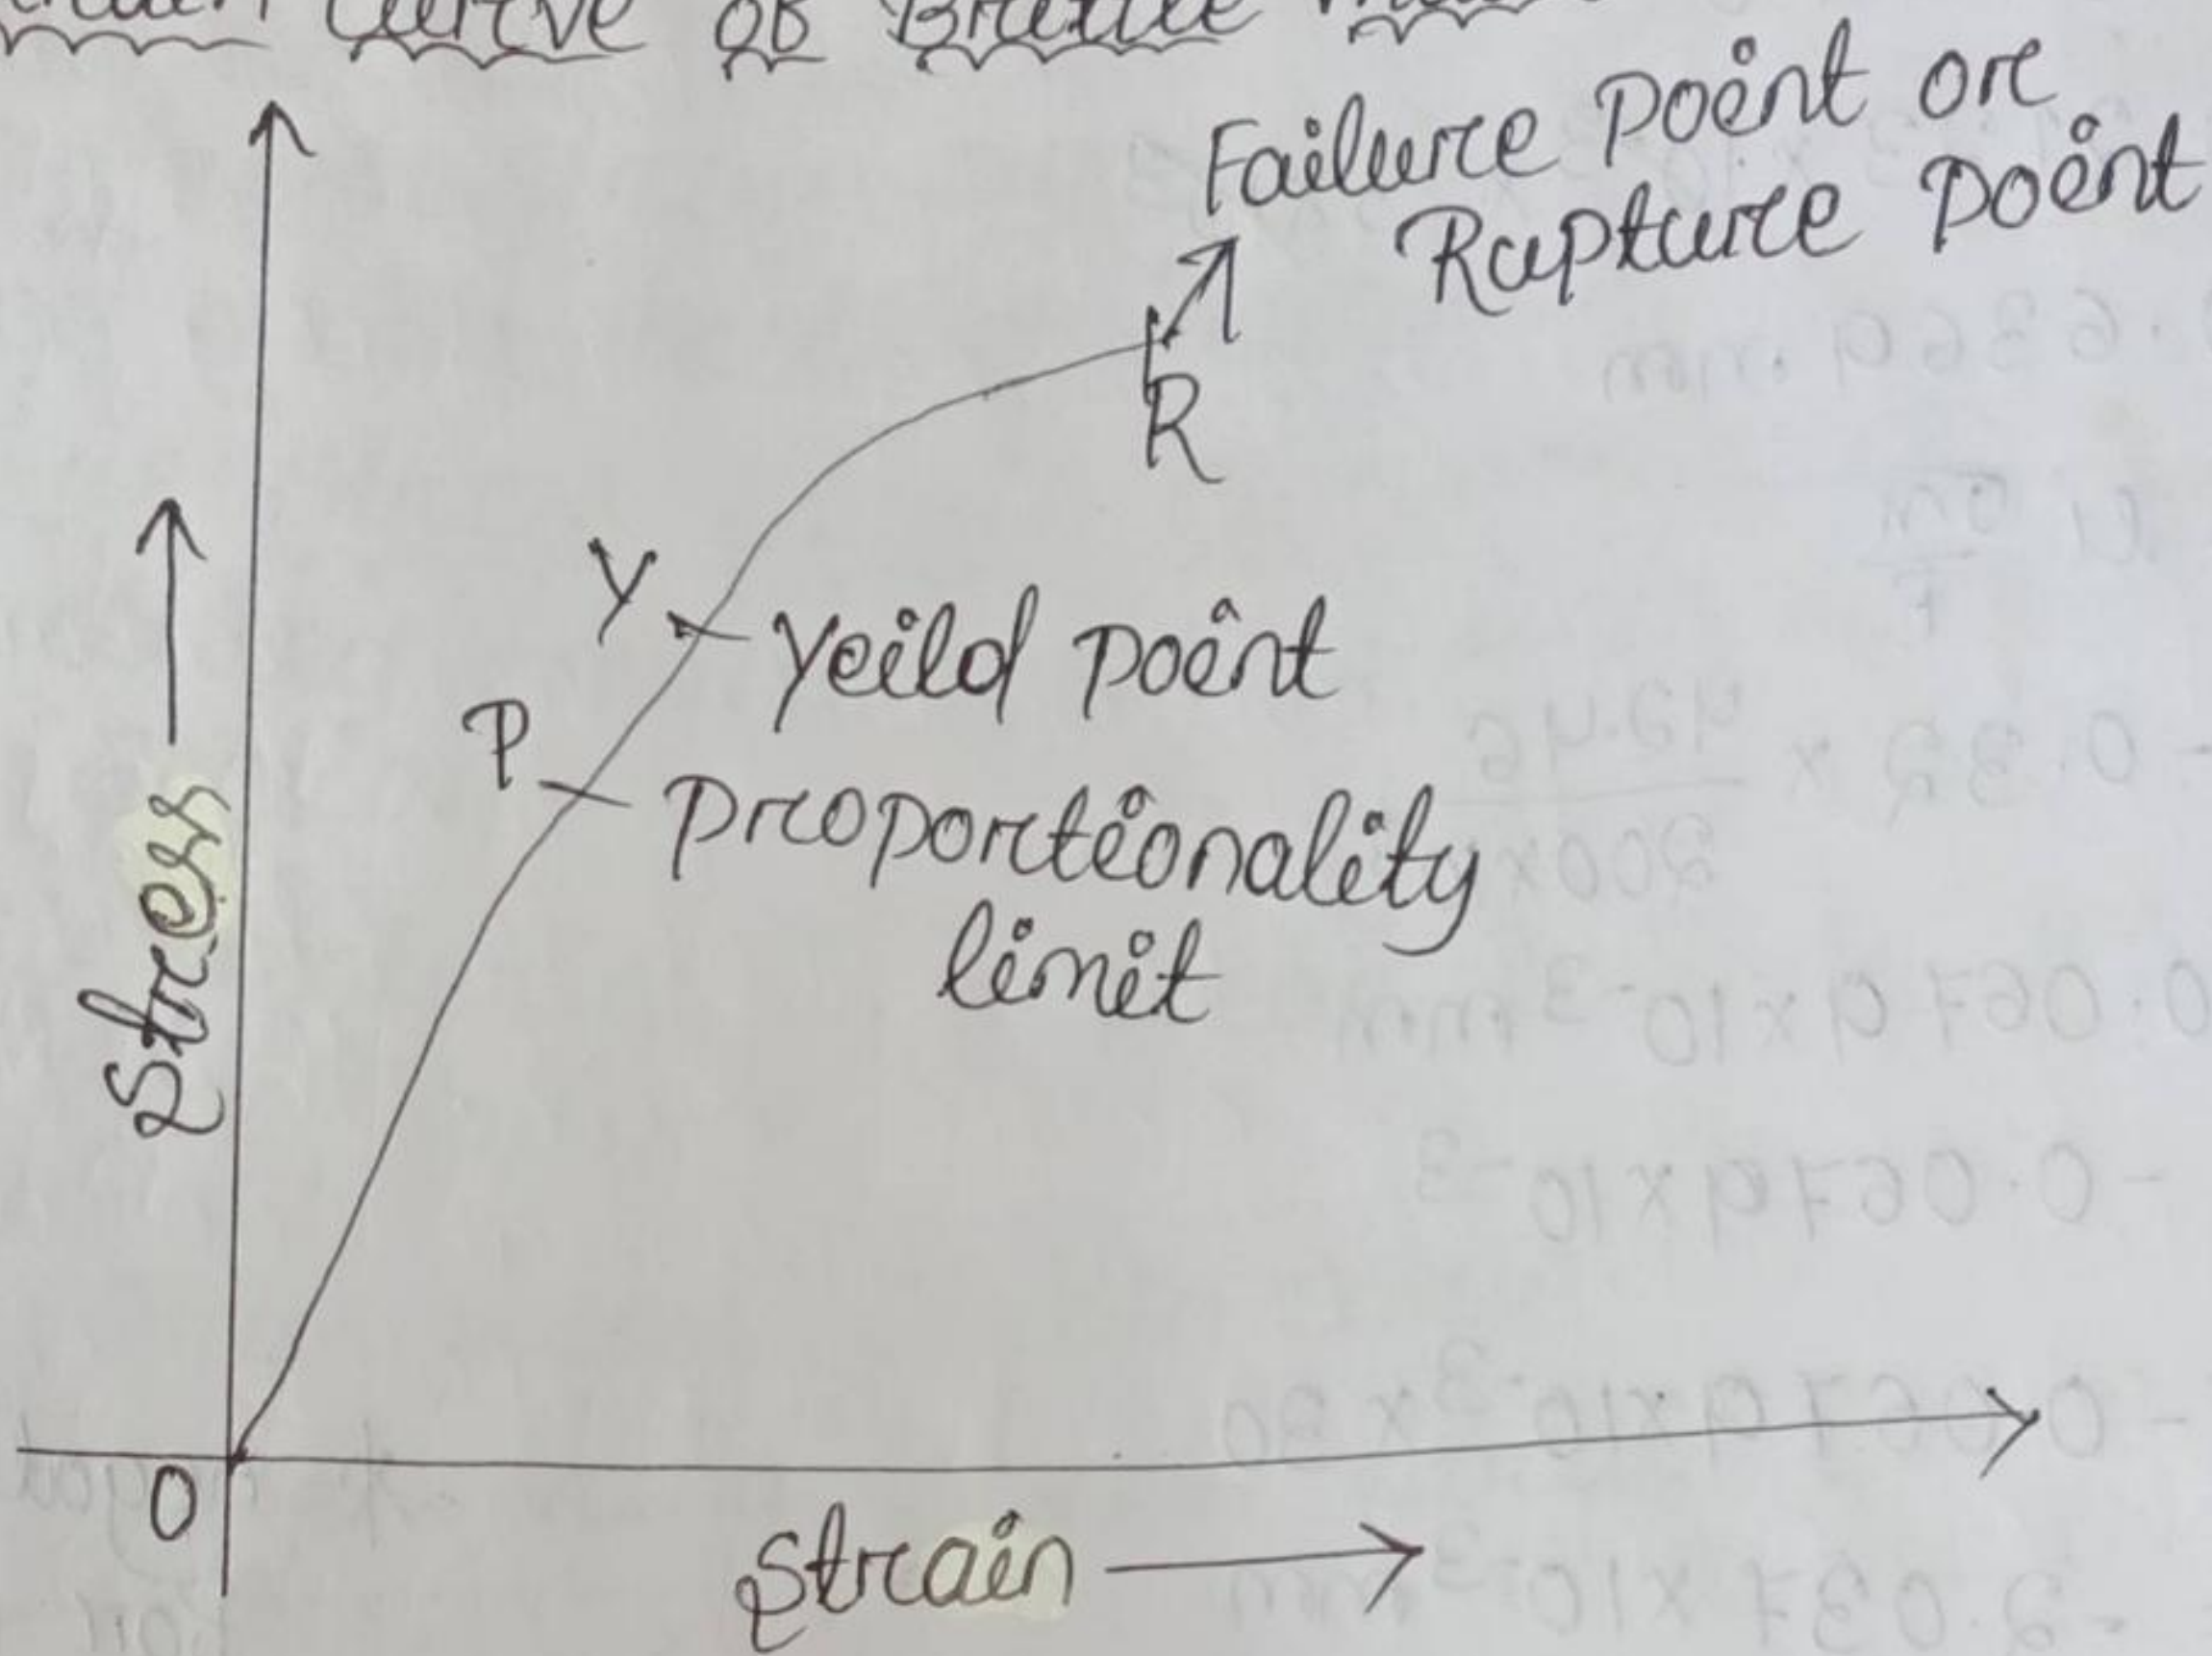 Curve of Brittle
Failure point or
Rupture point
R
Y
Yeild point
P
proportionality
limit
Stress
O
Strain